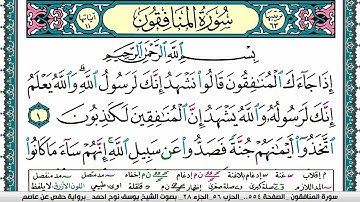 ترتيبها ٦٣
سُورَةُ المُنَافِقُونَ
آياتها ١١
بِسْمِ ٱللَّهِ ٱلرَّحْمَٰنِ ٱلرَّحِيمِ
إِذَا جَآءَكَ ٱلْمُنَٰفِقُونَ قَالُوا۟ نَشْهَدُ إِنَّكَ لَرَسُولُ ٱللَّهِ ۗ وَٱللَّهُ يَعْلَمُ
إِنَّكَ لَرَسُولُهُۥ وَٱللَّهُ يَشْهَدُ إِنَّ ٱلْمُنَٰفِقِينَ لَكَٰذِبُونَ ١
ٱتَّخَذُوٓا۟ أَيْمَٰنَهُمْ جُنَّةً فَصَدُّوا۟ عَن سَبِيلِ ٱللَّهِ ۚ إِنَّهُمْ سَآءَ مَا كَانُوا۟
سورة المنافقون الصفحة ٥٥٤ الحزب ٥٦ الجزء ٢٨ بصوت الشيخ يوسف نوح احمد رواية حفص عن عاصم